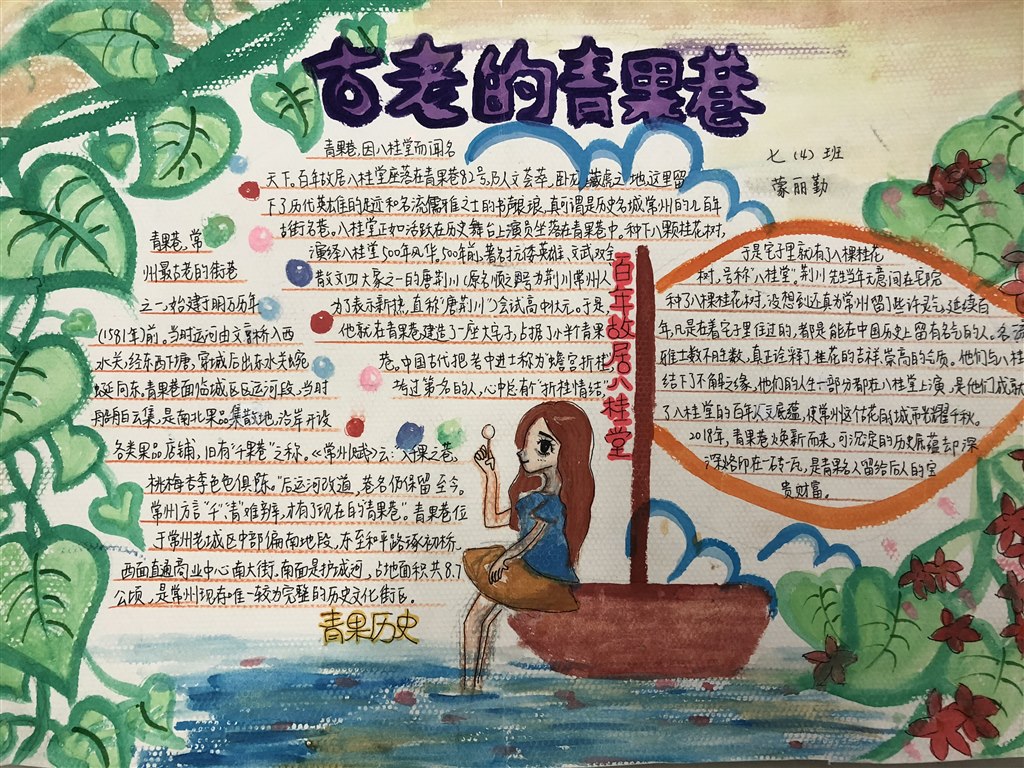 古老的青果巷
七（4）班
蒙丽勤
青果巷，因八桂堂而闻名
天下。百年故居八桂堂座落在青果巷82号，乃人文荟萃，卧龙藏虎之地，这里留
下了历代英雄的足迹和名流儒雅之士的书声琅琅，真可谓是历史名城常州的几百年
古街名巷。八桂堂正如活跃在历史舞台上演员坐落在青果巷中。种下八颗桂花树，
演绎八桂堂500年风华，500年前，著名抗倭英雄，文武双全
散文四大家之一的唐荆川（原名顺
为了表示
直称“唐荆川”）会试高中状元。于是，
他就在青果巷建造了一座大宅子，占据了小半青果
巷。中国古代把考中进士称为“蟾宫折桂”，
考过第名的人，心中总有“折桂情结”。
青果巷，常
州最古老的街巷
之一，始建于明万历年
（1581年）前。当时运河由文亨桥入西
水关，经东西下塘，穿城后出东水关蜿
蜒向东，青果巷面临城区区运河段，当时
船舶云集，是南北果品集散地，沿岸开设
各类果品店铺，旧有“千果巷”之称。《常州赋》云：“入千果之巷，
桃梅杏李色色俱陈。”后运河改道，著名仍保留至今。
常州方言“千”“青”难辨，才有了现在的“青果巷”。青果巷位
于常州老城区中部偏南地段，东至和平路琢初桥，
西面直通商业中心南大街，南面是护城河，占地面积共8.7
公顷，是常州现存唯一较为完整的历史文化街区。
青果历史
百年故居八桂堂
于是宅子里就有了八棵桂花
树，号称“八桂堂”。荆川先当年无意间在宅院
种了八棵桂花树，没想到还真为常州留了些许灵气，延续百
年，凡是在着宅子里住过的，都是能在中国历史上留有名字的人。名流
雅士数不胜数，真正诠释了桂花的吉祥崇高的含质。他们与八桂
结下了不解之缘，他们的人生一部分都在八桂堂上演，是他们成就
了八桂堂的百年人文底蕴，使常州这个花的城市荣耀千秋。
2018年，青果巷焕新而来，可沉淀的历史底蕴却深
深烙印在一砖一瓦，是青果名人留给后人的宝
贵财富。